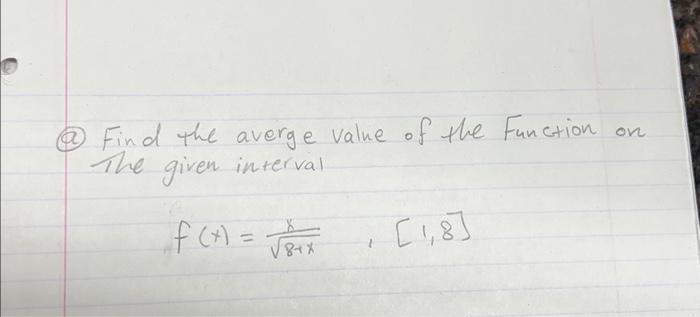 ⓐ Find the averge value of the Function on
The given interval
f(x) = x/√8+x , [1,8]